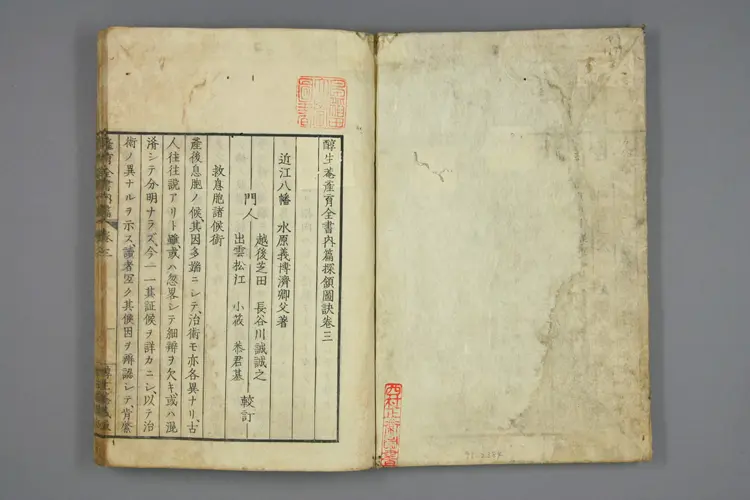 醇生菴產育全書内篇探頷圖訣卷三
近江八幡 水原義博濟卿父著
門人
越後芝田 長谷川誠誠之
出雲松江 小莜 恭君基
較訂
救息胞諸候術
產後息胞ノ候其因多端ニシテ、治術モ亦各異ナリ、古
人往往說アリト雖、或ハ忽畧シテ細辨ヲ欠キ、或ハ混
淆シテ分明ナラズ、今一一其証候ヲ詳カニシ、以テ治
術ノ異ナルヲ示ス、讀者宜ク其候因ヲ辨認シテ、肯綮
產育全書内篇 卷三